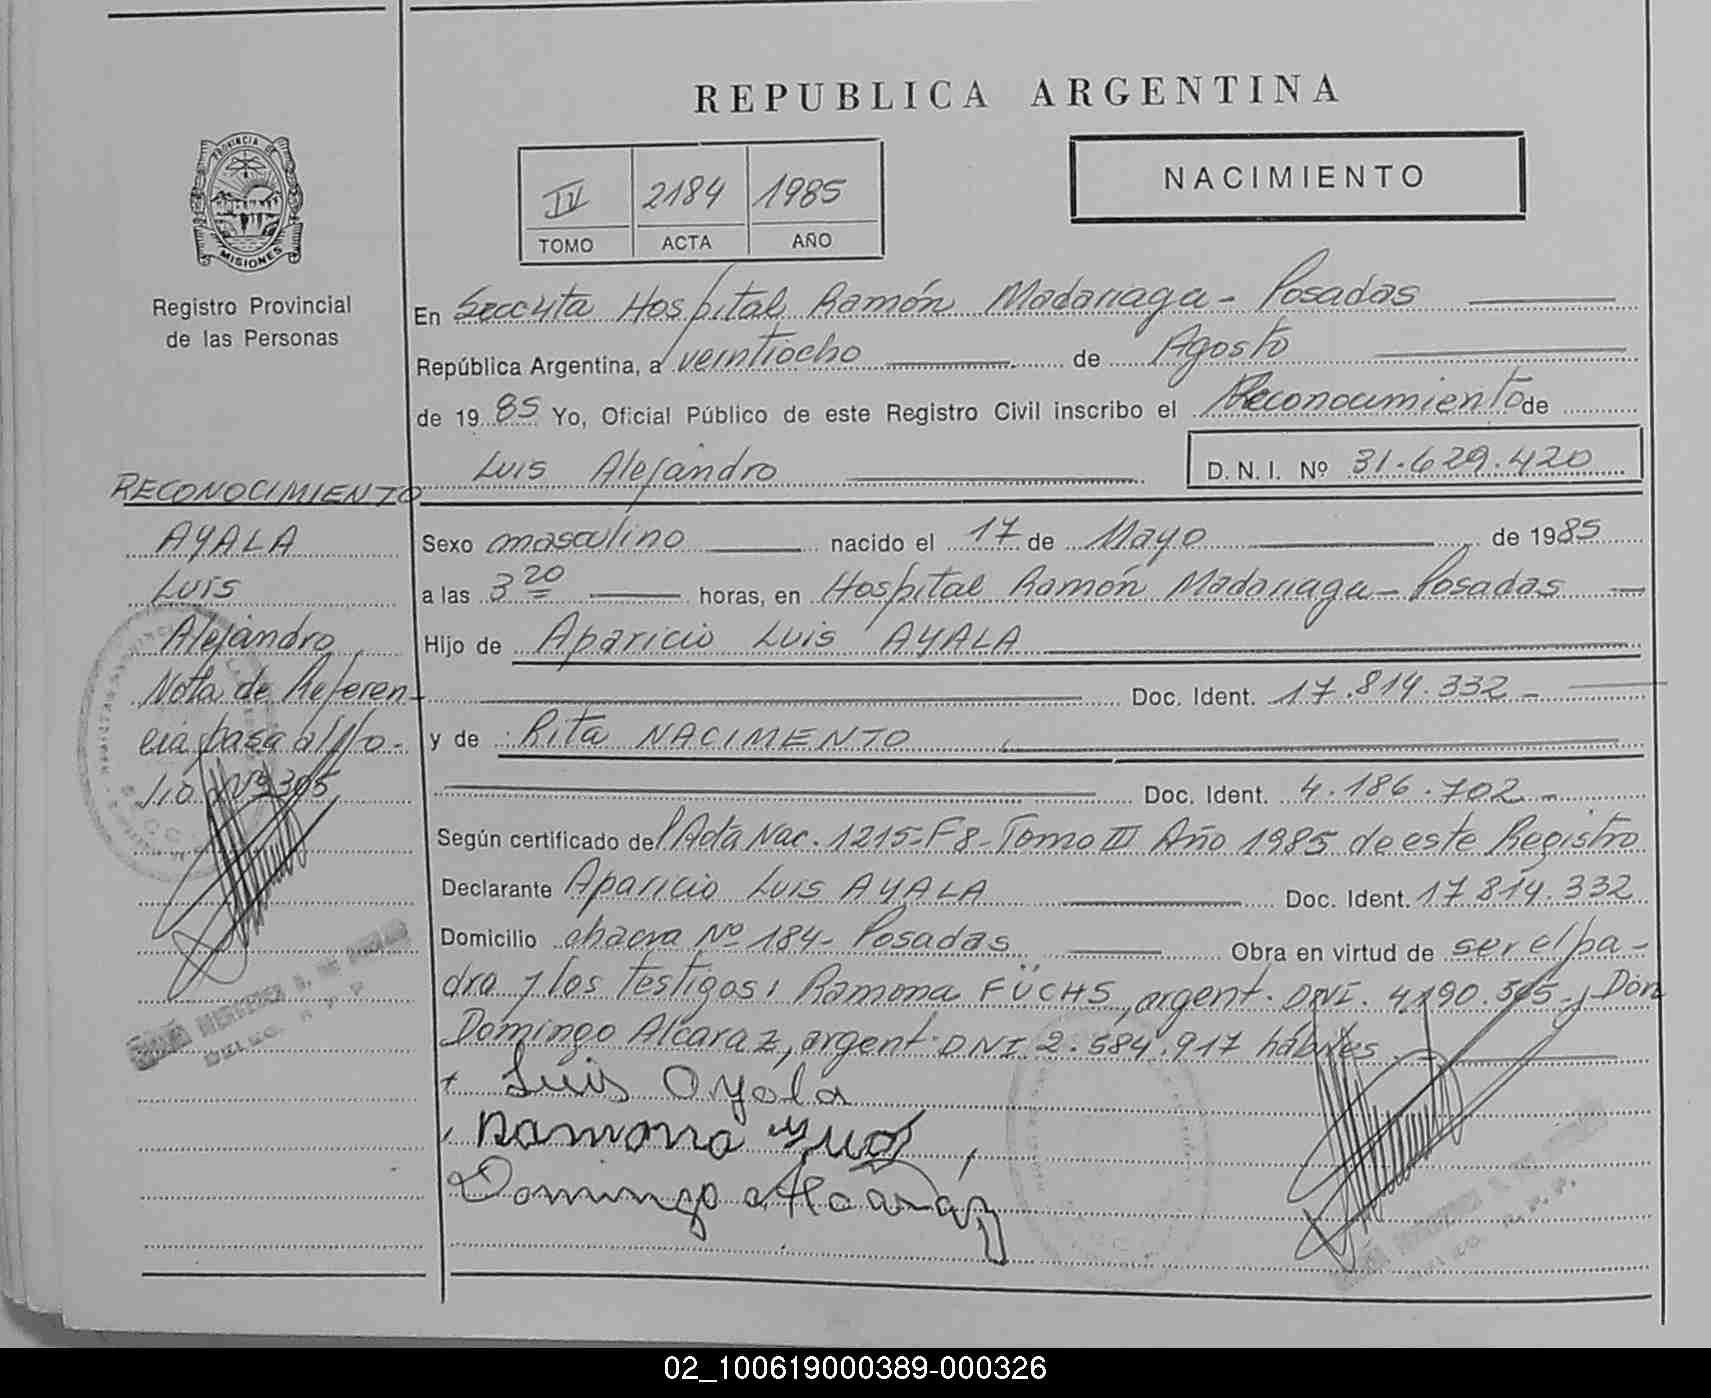 REPUBLICA ARGENTINA
PROVINCIA DE
MISIONES
Registro Provincial
de las Personas
IV 2184 1985
TOMO ACTA AÑO
NACIMIENTO
En Secc 4ta Hospital Ramón Madariaga - Posadas
República Argentina, a veintiocho de Agosto
de 1985 Yo, Oficial Público de este Registro Civil inscribo el Reconocimiento de
Luis Alejandro D. N. I. Nº 31.629.420
RECONOCIMIENTO
AYALA
Luis
Alejandro
Nota de Referen-
cia pasa al fo-
lio Nº 305
Sexo masculino nacido el 17 de Mayo de 1985
a las 3 20 horas, en Hospital Ramón Madariaga - Posadas
Hijo de Aparicio Luis AYALA
Doc. Ident. 17.814.332 -
y de Rita NACIMENTO
Doc. Ident. 4.186.702 -
Según certificado del Acta Nac. 1215-F8-Tomo III Año 1985 de este Registro
Declarante Aparicio Luis AYALA Doc. Ident. 17.814.332
Domicilio chacra Nº 184- Posadas Obra en virtud de ser el pa-
dre y los testigos: Ramona FÜCHS, argent. DNI. 4.190.545 y Don
Domingo Alcaraz, argent. DNI 2.584.917 hábiles
Luis Ayala
Ramona
Domingo Alcaraz
02_100619000389-000326